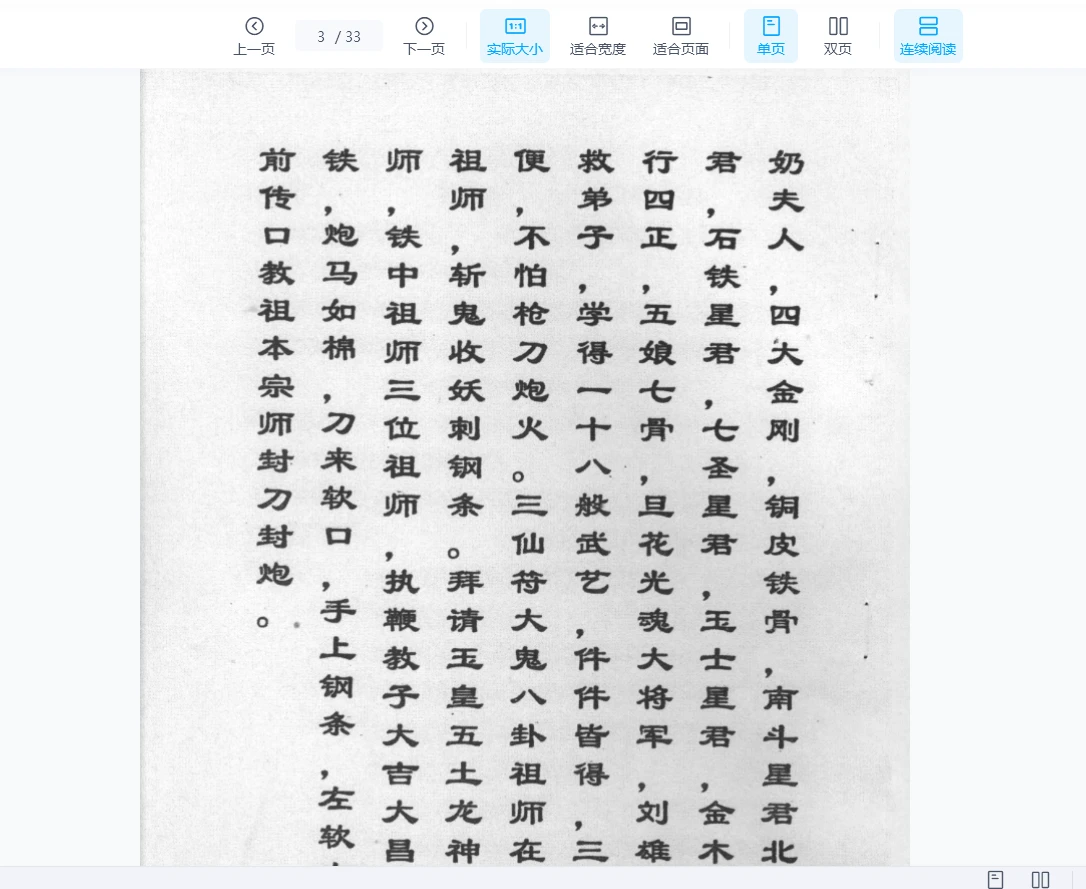 上一页
3 / 33
下一页
1:1
实际大小
适合宽度
适合页面
单页
双页
连续阅读
奶夫人，四大金刚，铜皮铁骨，南斗星君北
君，石铁星君，七圣星君，玉士星君，金木
行四正，五娘七骨，旦花光魂大将军，刘雄
救弟子，学得一十八般武艺，件件皆得，三
便，不怕枪刀炮火。三仙符大鬼八卦祖师在
祖师，斩鬼收妖刺钢条。拜请玉皇五土龙神
师，铁中祖师三位祖师，执鞭教子大吉大昌
铁，炮马如棉，刀来软口，手上钢条，左软
前传口教祖本宗师封刀封炮。